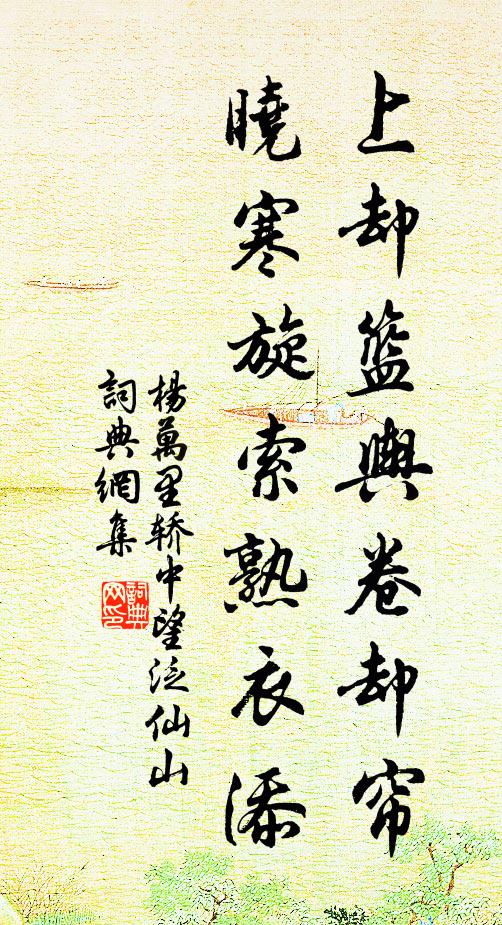 上却籃輿卷却帘
曉寒旋索熟衣添
楊萬里轿中望泛仙山
詞典網集
詞典网印